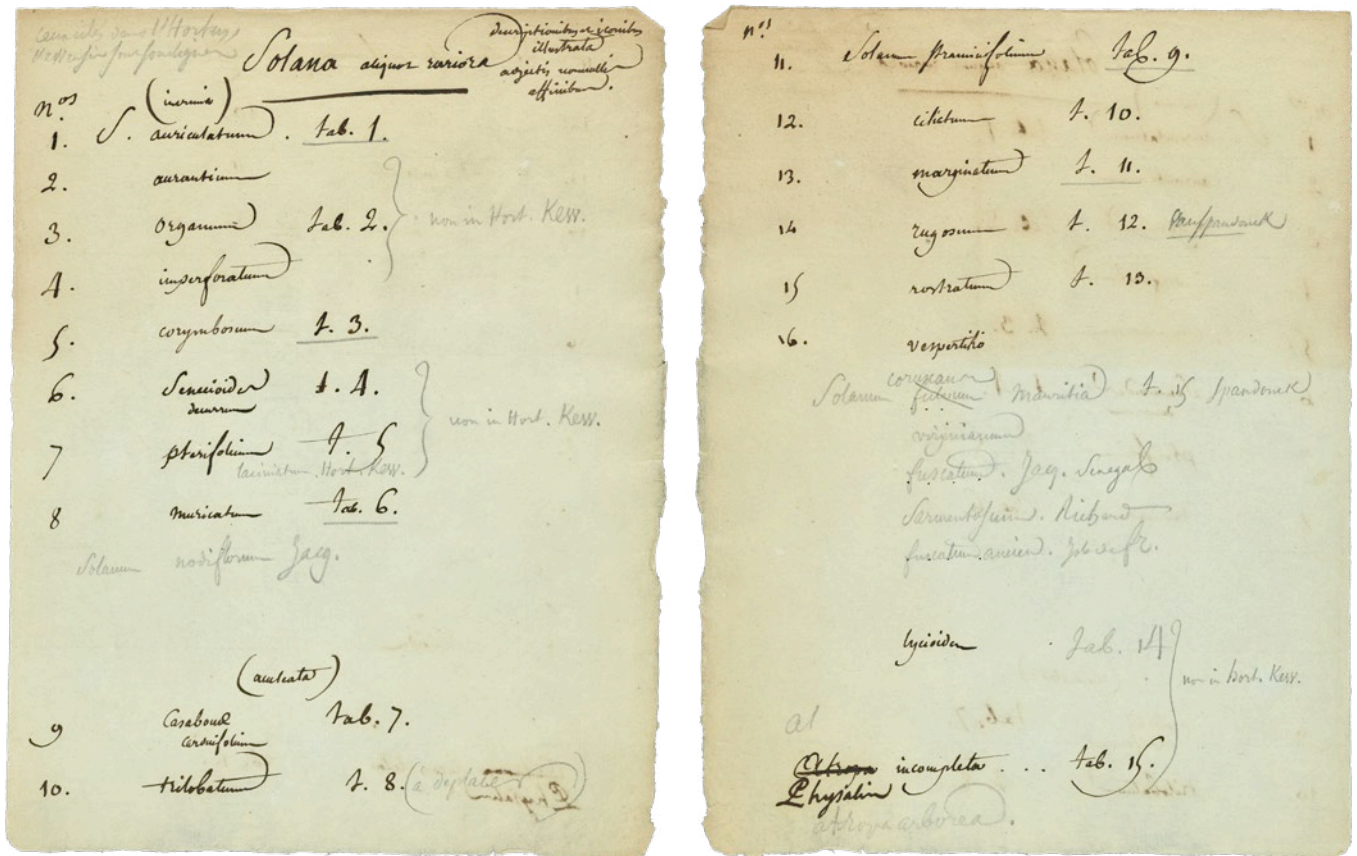 Solana aliquot rariora
descriptionibus et iconibus
illustrata
adjectis nonnullis
affinibus.
nos
(inermia)
1. S. auriculatum. tab. 1.
2. aurantium
3. organum tab. 2.
non in Hort. Kew.
4. imperforatum
5. corymbosum t. 3.
6. Senecioides t. 4.
decurrens
non in Hort. Kew.
7 pterifolium t. 5
laciniatum Hort. Kew.
8 muricatum tab. 6.
Solanum nodiflorum Jacq.
(aculeata)
9 Casabonæ tab. 7.
carduifolium
10. trilobatum t. 8.
Physalin
nos
11. Solanum tab. 9.
12. ciliatum t. 10.
13. marginatum t. 11.
14 rugosum t. 12. Vanspandonck
15 rostratum t. 13.
16. vespertilio
coruscans
Solanum Mauritia t. 15 Spandonck
virginianum
fuscatum. Jacq. Senegal
Sarmentosum. Richard
fuscatum
lycioides tab. 14
non in hort. Kew.
at
Atropa incompleta ... tab. 15.
Physalin
atropa arborea.